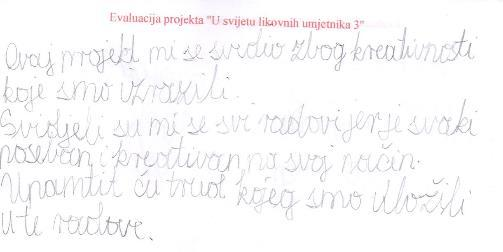 Evaluacija projekta "U svijetu likovnih umjetnika 3"
Ovaj projekt mi se svidio zbog kreativnosti
koje smo izrazili.
Svidjeli su mi se svi radovi jer je svaki
poseban i kreativan na svoj način.
Upamtit ću trud kojeg smo uložili
u te radove.